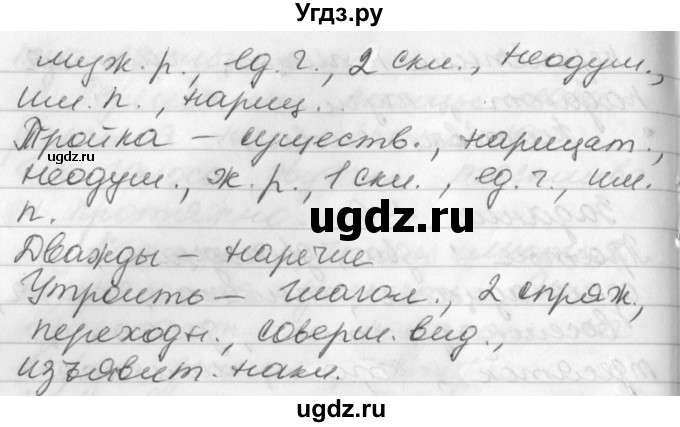 Угдз.ру
муж. р., ед. ч., 2 скл., неодуш.,
им. п., нариц.
Тройка – существ., нарицат.,
ugdz.ru
неодуш., ж. р., 1 скл., ед. ч., им.
п.
ugdz.ru
Дважды – наречие
Утроить – глагол., 2 спряж.,
ugdz.ru
переходн., соверш. вид.,
изъявит. накл.
ugdz.ru